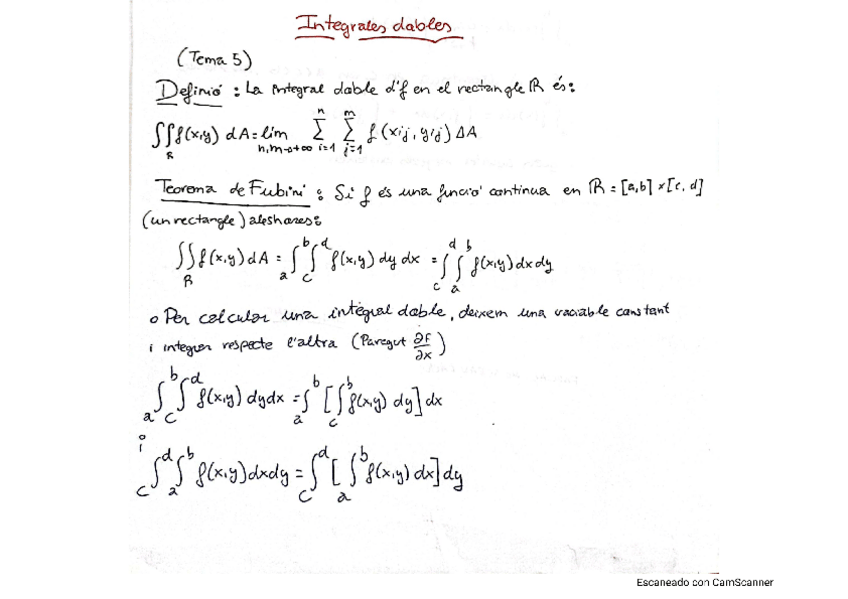 Integrales dobles
(Tema 5)
Definió: La integral doble d'f en el rectangle R és:
∬_R f(x,y) dA = lim_{n,m→+∞} ∑_{i=1}^{n} ∑_{j=1}^{m} f(xij, yij) ΔA
Teorema de Fubini: Si f és una funció contínua en R = [a,b] x [c,d]
(un rectangle) aleshores:
∬_R f(x,y) dA = ∫_a^b ∫_c^d f(x,y) dy dx = ∫_c^d ∫_a^b f(x,y) dx dy
o Per calcular una integral doble, deixem una variable constant
i integrem respecte l'altra (Paregut ∂F/∂x)
∫_a^b ∫_c^d f(x,y) dydx = ∫_a^b [∫_c^b f(x,y) dy] dx
i
∫_c^d ∫_a^b f(x,y) dxdy = ∫_c^d [∫_a^b f(x,y) dx] dy
Escaneado con CamScanner